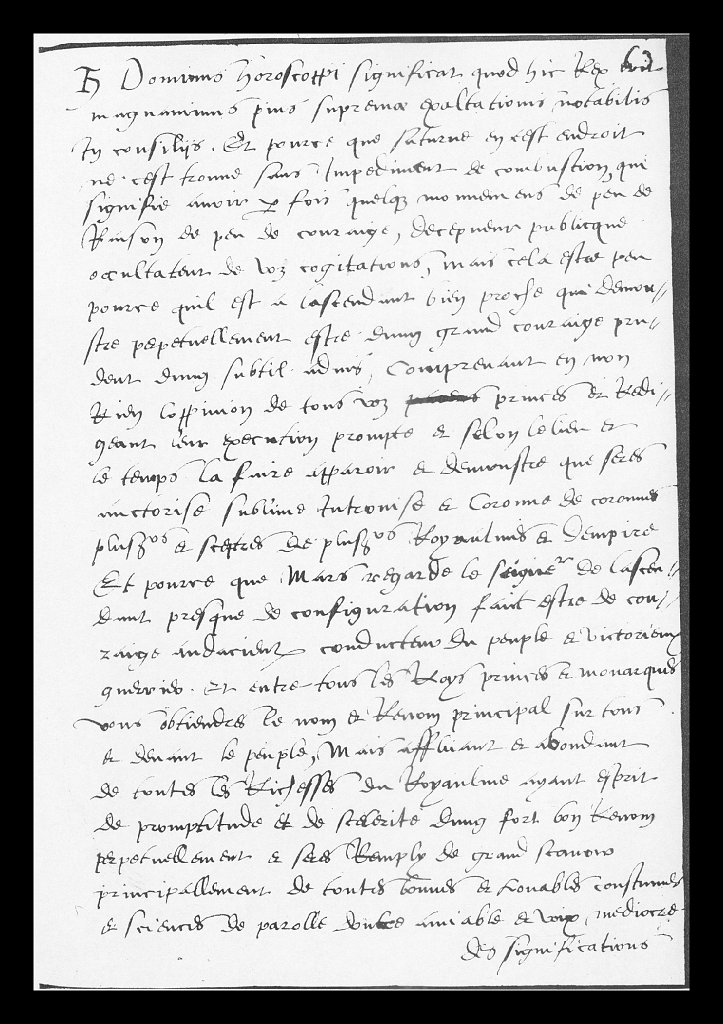 ♄ Dominus horoscoppi significat quod hic Rex erit
magnanimus pius supremae exaltationis notabilis
In consiliis. Et pource que saturne en cest endroit
ne cest trouue sans Impediment de combustion, qui
signifie auoir p fois quelq mouuemens de peu de
Raison de peu de couraige, decepueur publicque
occultateur de voz cogitations, mais cela estre peu
pource quil est a lascendant bien proche qui demou-
stre perpetuellement estre dung grand couraige pru-
dent dung subtil aduis, Comprenant en mon
Rien loppinion de tous voz princes et Redi-
geant leur execution prompte et selon le lieu et
le temps la faire apparoir et demonstre que serés
auctorise sublime Intronise et Coronne de coronnes
pluss et sceptres de pluss Royaulmes et dempire
Et pource que Mars regarde le seigner de lascen-
dant presque de configuration faict estre de cou-
raige audacieux conducteur du peuple et victorieux
guerrier. Et entre tous les Roys princes et monarques
vous obtiendres le nom et Renom principal sur tous
et deuant le peuple, Mais affluant et abondant
de toutes les Richesses du Royaulme ayant esprit
de promptitude et de scelerite dung fort bon Renom
perpetuellement et serés Remply de grand scauoir
principallement de toutes bonnes et louables coustumes
et sciences de parolle doulce amiable et voix mediocre
des significations